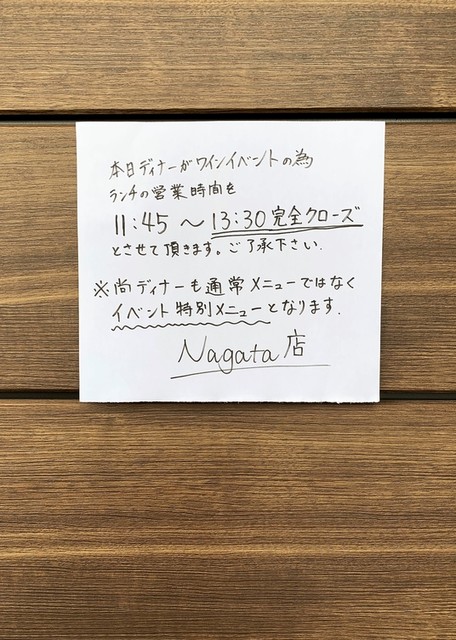 本日ディナーがワインイベントの為
ランチの営業時間を
11:45 〜 13:30 完全クローズ
とさせて頂きます。ご了承下さい.
※尚ディナーも通常メニューではなく
イベント特別メニューとなります.
Nagata店